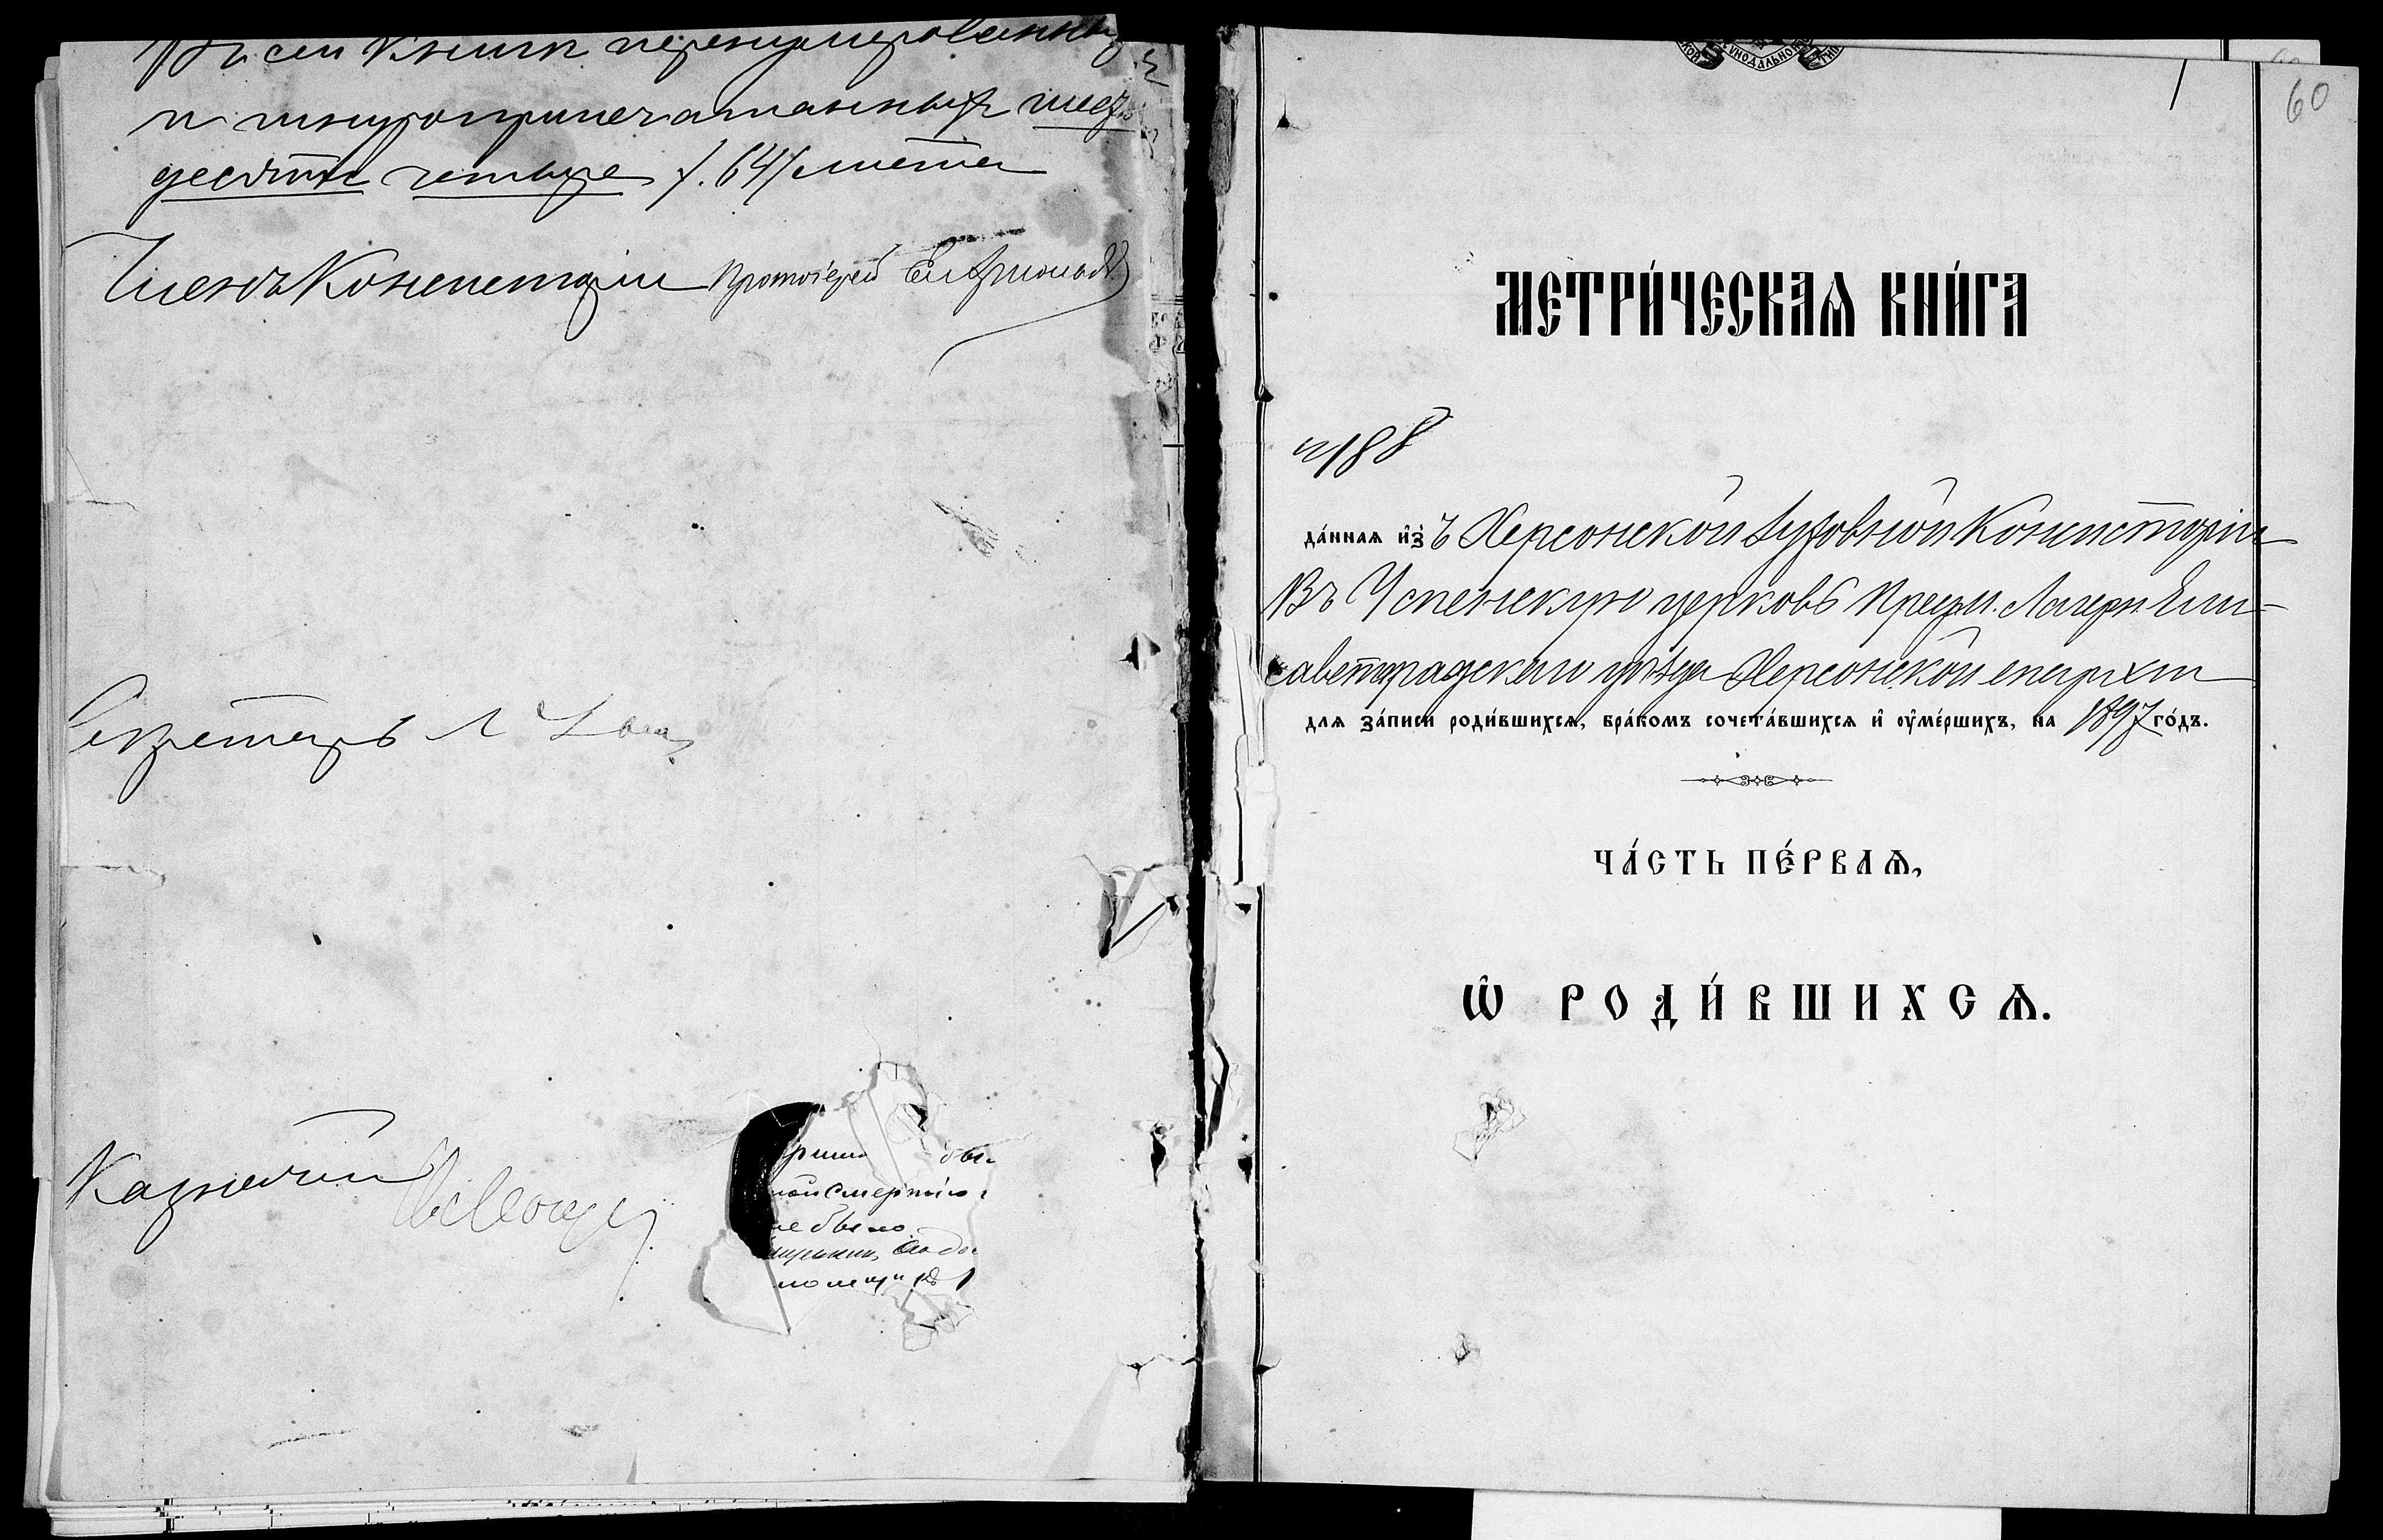 Въ сей книгѣ перенумерованныхъ
и шнуроприпечатанныхъ шесть
десятъ четыре /. 64/ листа
Членъ Консисторіи Протоіерей
Секретарь
Казначей
ой смертію
не было
60
МЕТРИ́ЧЕСКАѦ КНИ́ГА
№ 188
да́ннаѧ и҆зъ Херсонской Духовной Консисторіи
Въ Успенскую церковь Лагеря Ели-
саветградскаго уѣзда Херсонской епархіи
для за́писи роди́вшихсѧ, бра́комъ сочета́вшихсѧ и҆ оу҆ме́ршихъ, на 1897 го́дъ.
ЧА́СТЬ ПЕ́РВАѦ,
Ѽ РОДИ́ВШИХСѦ.